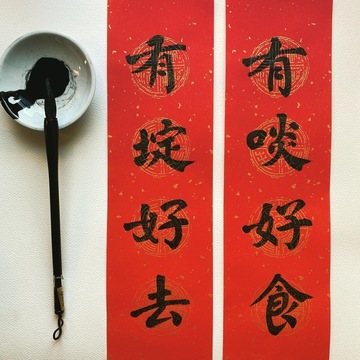 有啖好食
有埞好去